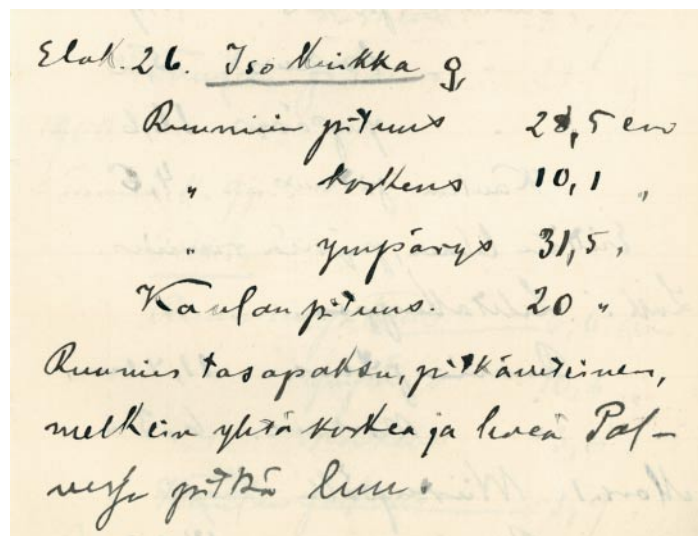 Elok. 26. Iso Kuikka ♀
Ruumiin pituus 28,5 cm
„ korkeus 10,1 „
„ ympärys 31,5 „
Kaulan pituus. 20 „
Ruumis tasapaksu, pitkäveteinen,
melkein yhtä korkea ja leveä Pol-
vessa pitkä luu.